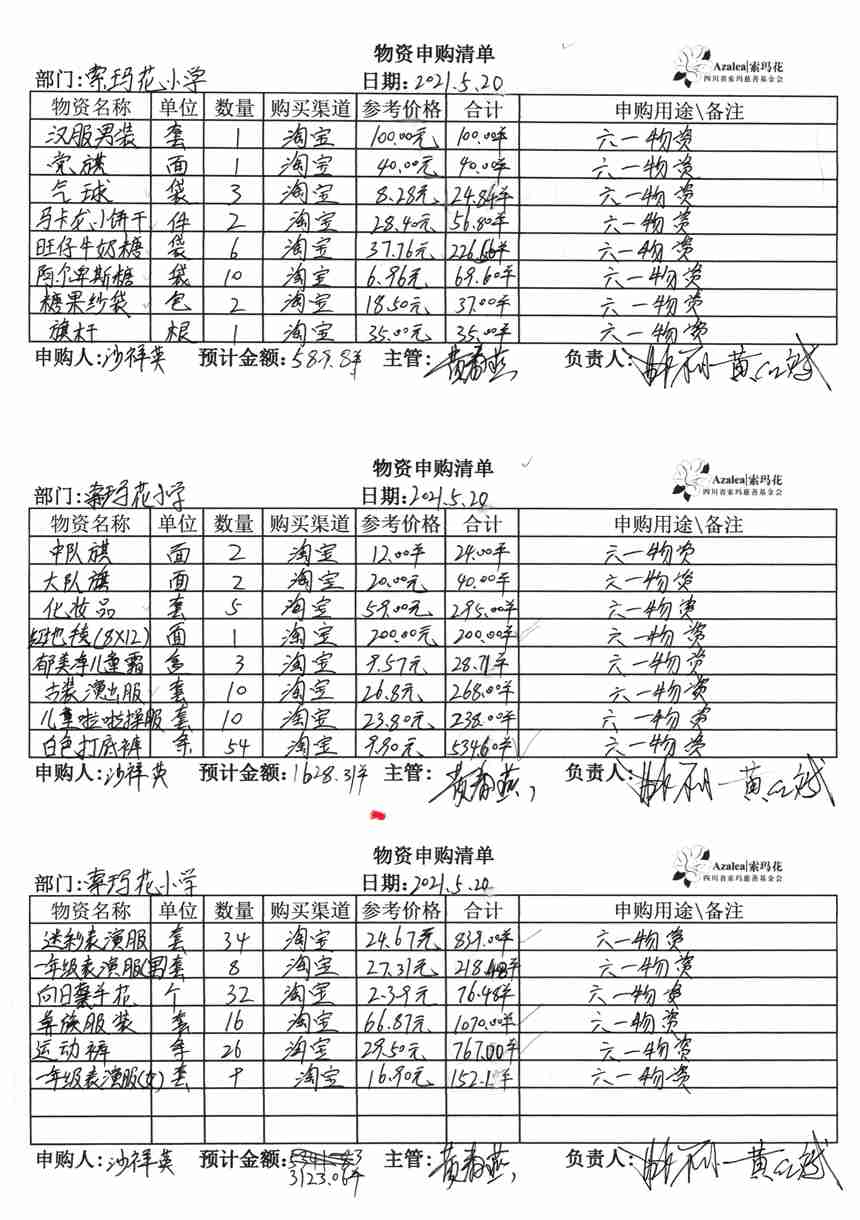 物资申购清单
Azalea|索玛花
四川省索玛慈善基金会
部门:索玛花小学 日期:2021.5.20
物资名称 单位 数量 购买渠道 参考价格 合计 申购用途\备注
汉服男装 套 1 淘宝 100.00元 100.00元 六一物资
党旗 面 1 淘宝 40.00元 40.00元 六一物资
气球 袋 3 淘宝 8.28元 24.84元 六一物资
马卡龙小饼干 件 2 淘宝 28.40元 56.80元 六一物资
旺仔牛奶糖 袋 6 淘宝 37.76元 226.56元 六一物资
阿尔卑斯糖 袋 10 淘宝 6.96元 69.60元 六一物资
糖果纱袋 包 2 淘宝 18.50元 37.00元 六一物资
旗杆 根 1 淘宝 35.00元 35.00元 六一物资
申购人:沙祥英 预计金额:589.8元 主管:黄春燕 负责人:
物资申购清单
Azalea|索玛花
四川省索玛慈善基金会
部门:索玛花小学 日期:2021.5.20
物资名称 单位 数量 购买渠道 参考价格 合计 申购用途\备注
中队旗 面 2 淘宝 12.00元 24.00元 六一物资
大队旗 面 2 淘宝 20.00元 40.00元 六一物资
化妆品 套 5 淘宝 59.00元 295.00元 六一物资
红地毯(8X12) 面 1 淘宝 200.00元 200.00元 六一物资
郁美净儿童霜 盒 3 淘宝 9.57元 28.71元 六一物资
古装演出服 套 10 淘宝 26.8元 268.00元 六一物资
儿童啦啦操服 套 10 淘宝 23.80元 238.00元 六一物资
白色打底裤 条 54 淘宝 9.90元 534.60元 六一物资
申购人:沙祥英 预计金额:1628.31元 主管:黄春燕 负责人:
物资申购清单
Azalea|索玛花
四川省索玛慈善基金会
部门:索玛花小学 日期:2021.5.20
物资名称 单位 数量 购买渠道 参考价格 合计 申购用途\备注
迷彩表演服 套 34 淘宝 24.67元 839.00元 六一物资
一年级表演服(男 套 8 淘宝 27.31元 218.48元 六一物资
向日葵手花 个 32 淘宝 2.39元 76.48元 六一物资
彝族服装 套 16 淘宝 66.87元 1070.00元 六一物资
运动裤 条 26 淘宝 29.50元 767.00元 六一物资
一年级表演服(女) 套 9 淘宝 16.90元 152.1元 六一物资
申购人:沙祥英 预计金额: 主管:黄春燕 负责人:
3123.06元